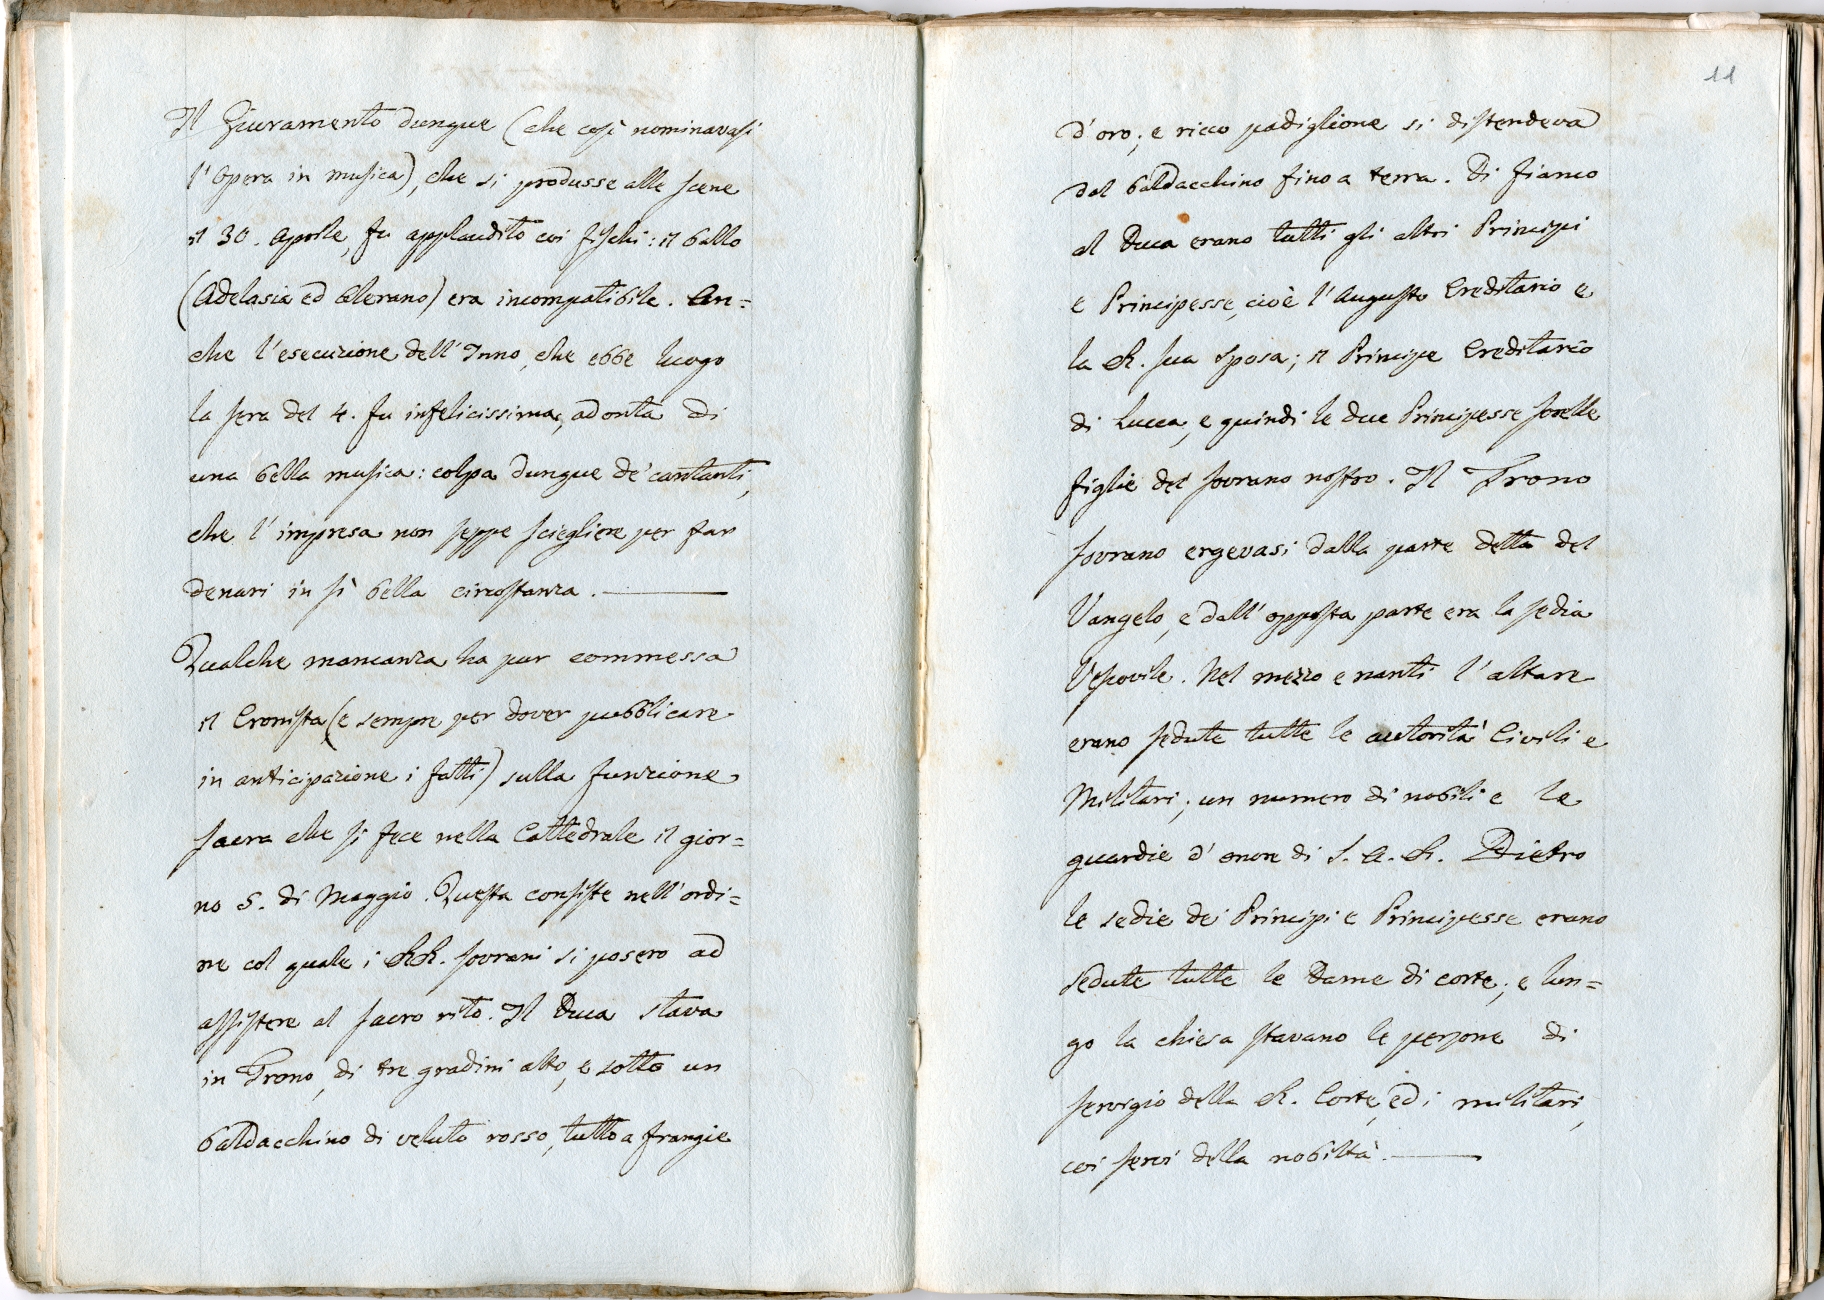 Il Giuramento dunque (che così nominavasi
l'Opera in musica), che si produsse alle scene
il 30. Aprile, fu applaudito coi fischi: il ballo
(Adelasia ed Alerano) era incompatibile. An=
che l'esecuzione dell'Inno, che ebbe luogo
la sera del 4. fu infelicissima, ad onta di
una bella musica: colpa dunque de' cantanti,
che l'impresa non seppe sciegliere per far
denari in sì bella circostanza.
Qualche mancanza ha pur commessa
il Cronista (e sempre per dover pubblicare
in anticipazione i fatti) sulla funzione
sacra che si fece nella Cattedrale il gior=
no 5. di Maggio. Questa consiste nell'ordi=
ne col quale i RR. Sovrani si posero ad
assistere al sacro rito. Il Duca stava
in Trono, di tre gradini alto, e sotto un
baldacchino di veluto rosso, tutto a frangie
11
d'oro; e ricco padiglione si distendeva
dal baldacchino fino a terra. Di fianco
al Duca erano tutti gli altri Principi
e Principesse, cioè l'Augusto Ereditario e
la R. sua Sposa; il Principe Ereditario
di Lucca, e quindi le due Principesse sorelle
figlie del Sovrano nostro. Il Trono
Sovrano ergevasi dalla parte detta del
Vangelo, e dall'opposta parte era la sedia
Vescovile. Nel mezzo e nanti l'altare
erano sedute tutte le autorità Civili e
Militari; un numero di nobili e le
guardie d'onore di S. A. R. Dietro
le sedie dei Principi e Principesse erano
sedute tutte le Dame di corte; e lun=
go la chiesa stavano le persone di
servigio della R. Corte, ed i militari,
coi servi della nobiltà.